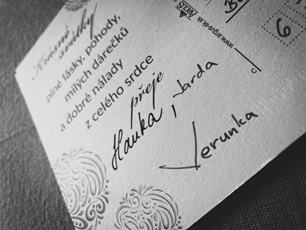 Krásné svátky
plné lásky, pohody,
milých dárečků
a dobré nálady
z celého srdce
přeje
Hanka, Jarda
Verunka
6